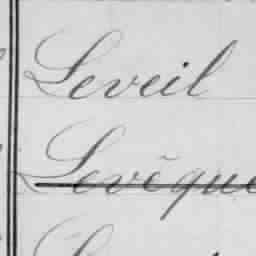 Leveil
Levêque